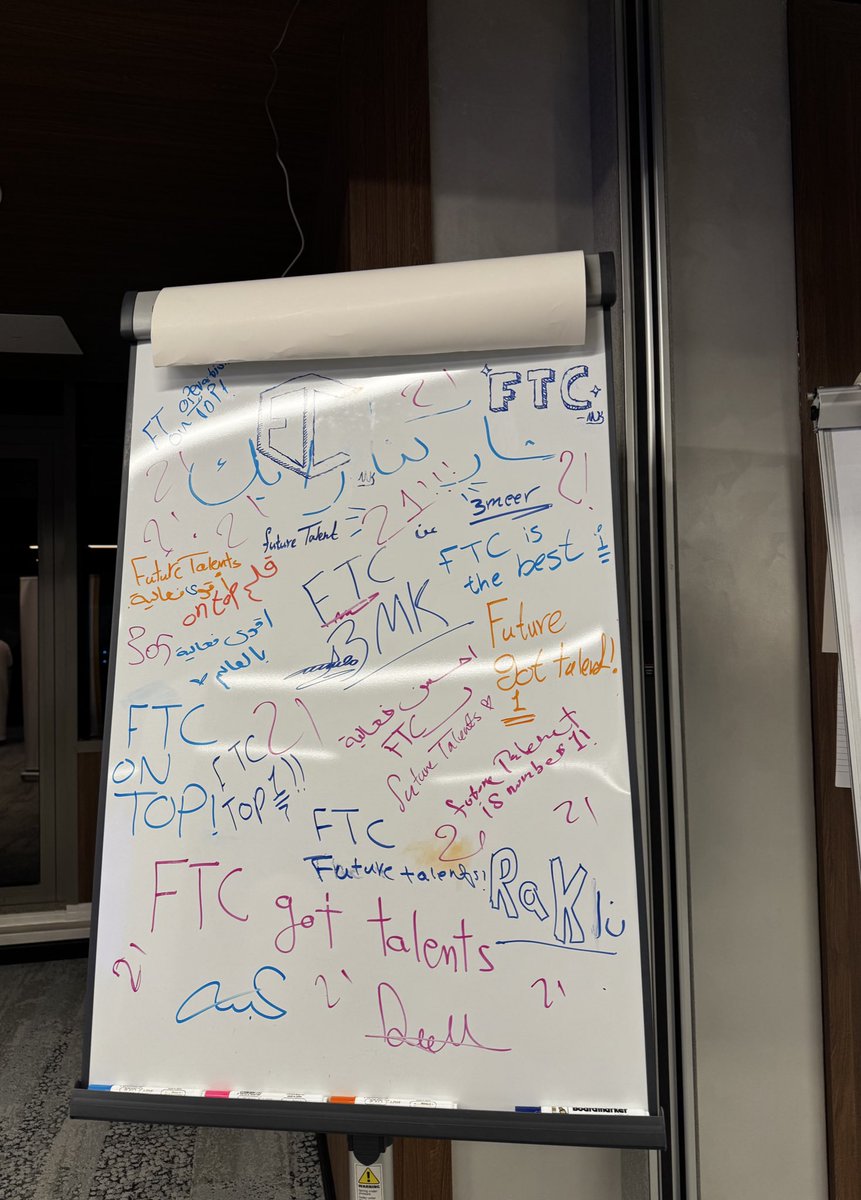 FT operation
on TOP!
FTC
21
FTC
MK
21
MK
21
21!!!
3meer
21
21
21
future Talent
عن
FTC is
the best
1
Future Talents
أقوى فعالية
on top
FTC
3MK
Future
got talent!
1
اقوى فعالية
بالعالم
احسن فعالية
FTC
future Talents
FTC
ON
TOP!
21
FTC
TOP 1!!
future Talent
is number 1!
FTC
Future talents!!
21
21
RaKlü
FTC got talents
21
21
21
WARNING